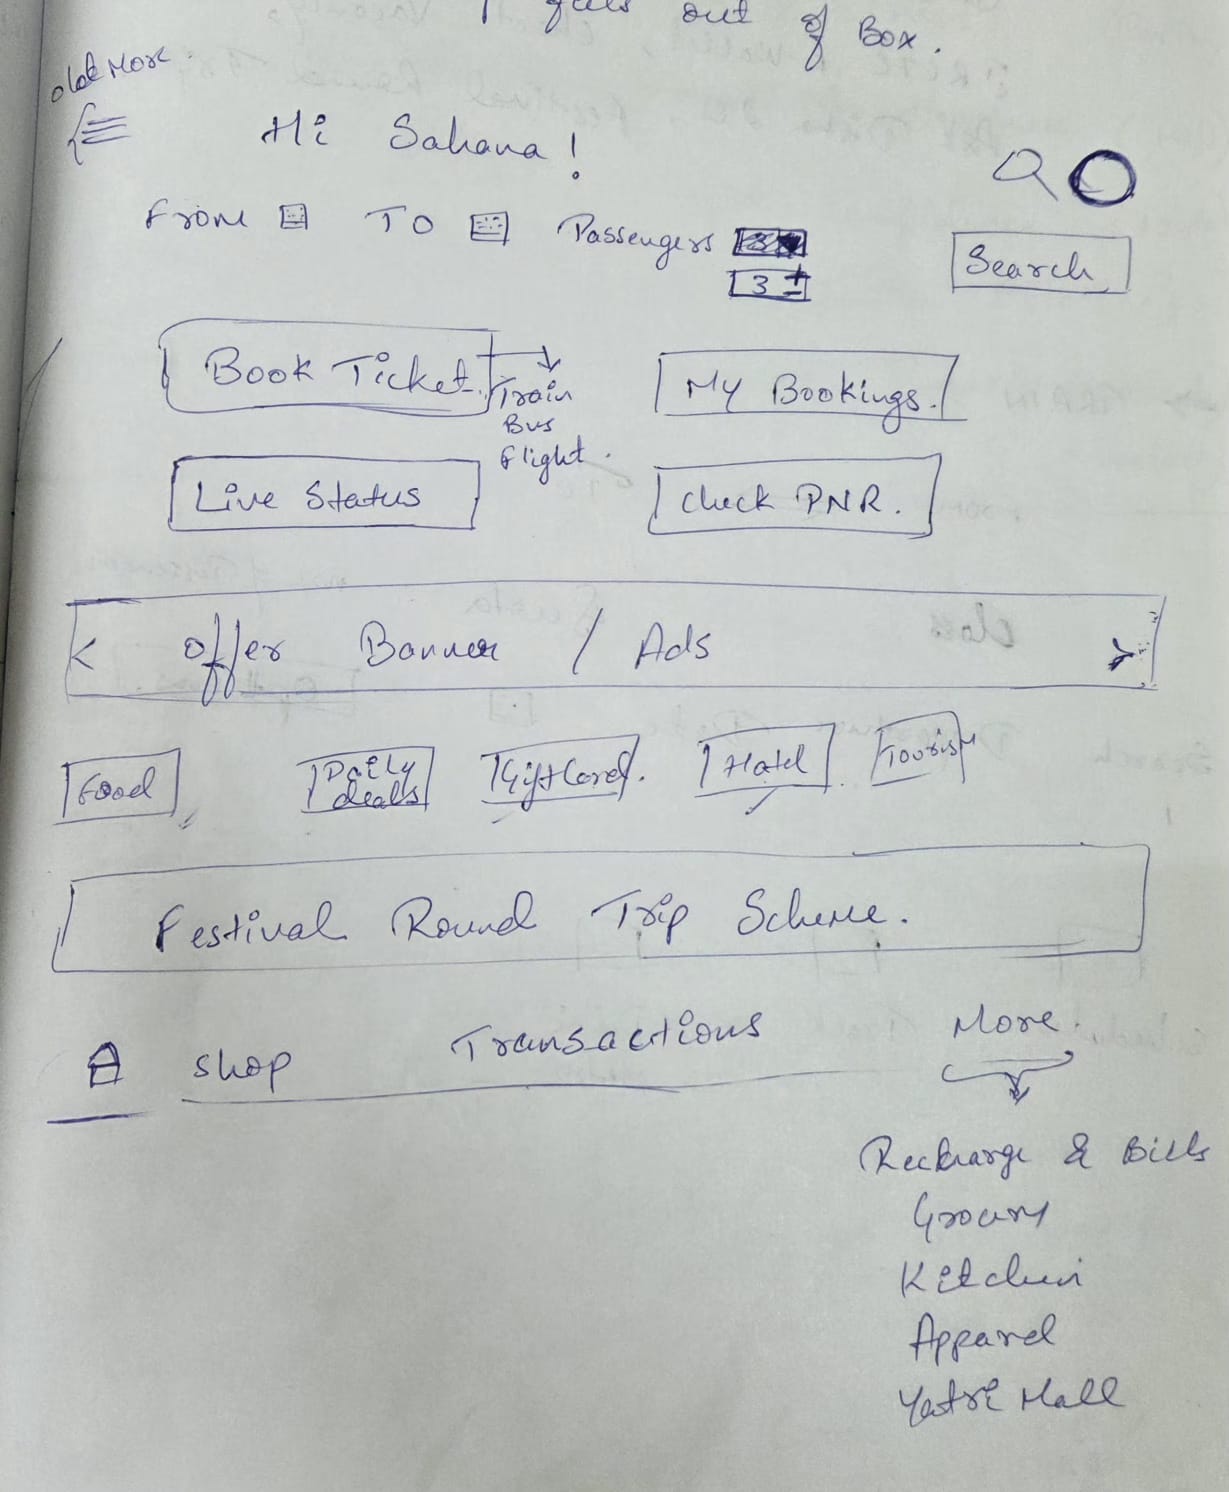 gets out of Box.
old More.
Hi Sahana!
From TO Passengers
3 ±
Search
Book Ticket. My Bookings.
Train
Bus
Flight.
Live Status check PNR.
< Offer Banner / Ads >
Food Daily deals Gift Card. Hotel Tourism
Festival Round Trip Scheme.
shop Transactions More.
Recharge & Bills
Grocery
Kitchen
Apparel
Yatri Mall